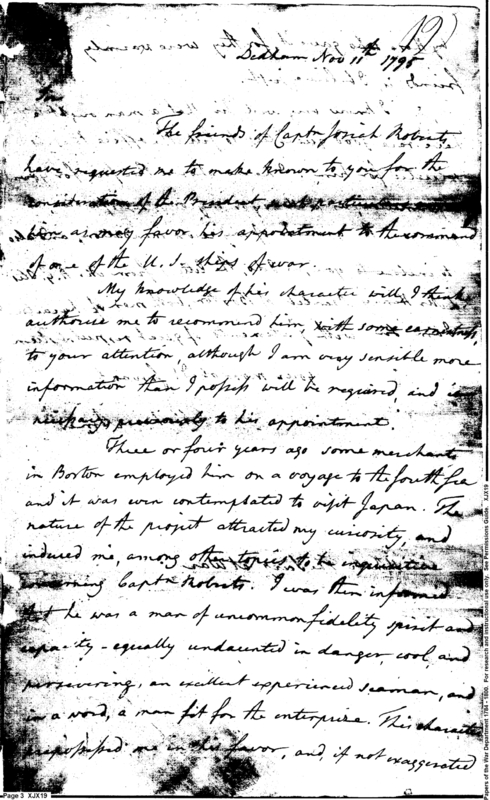 Dedham Nov 11th 1795
Sir
The friends of Captn Josiah Roberts
have requested me to make known to you for the
consideration of the President, such particulars
as may favor his appointment to the command
of one of the U. S. ships of war.
My knowledge of his character will, I think
authorise me to recommend him, with some earnestness
to your attention, although I am very sensible more
information than I possess will be required, and is
necessary previously to his appointment.
Three or four years ago some merchants
in Boston employed him on a voyage to the South Sea
and it was even contemplated to visit Japan. The
nature of the project attracted my curiosity, and
induced me, among other topics to be inquisitive
concerning Captn Roberts. I was then informed
that he was a man of uncommon fidelity spirit and
capacity - equally undaunted in danger, cool, and
persevering, an excellent experienced seaman, and
in a word, a man fit for the enterprize. This character
prepossessed me in his favor, and, if not exaggerated
Page 3 XJX19
Papers of the War Department 1784 - 1800. For research and instructional use only. See Permissions Guide. XJX19